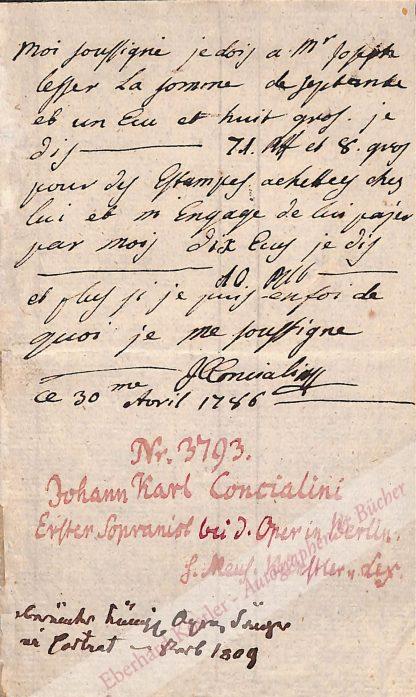 Moi soussigné je dois a Mr Joseph
lesser La somme de septante
et un Ecu et huit gros. je
dis 71. et 8. gros
pour des Estampes achettees chez
lui et m Engage de lui païer
par mois dix Ecus je dis
10
et plus si je puis enfoi de
quoi je me soussigne
JConcialini
ce 30me Avril 1786
Nr. 3793.
Johann Karl Concialini
Erster Sopranist bei d. Oper in Berlin.
s. Meus. Künstler-Lex.
Sänger
Portrat – starb 1809
Eberhard Köstler – Autographen & Bücher